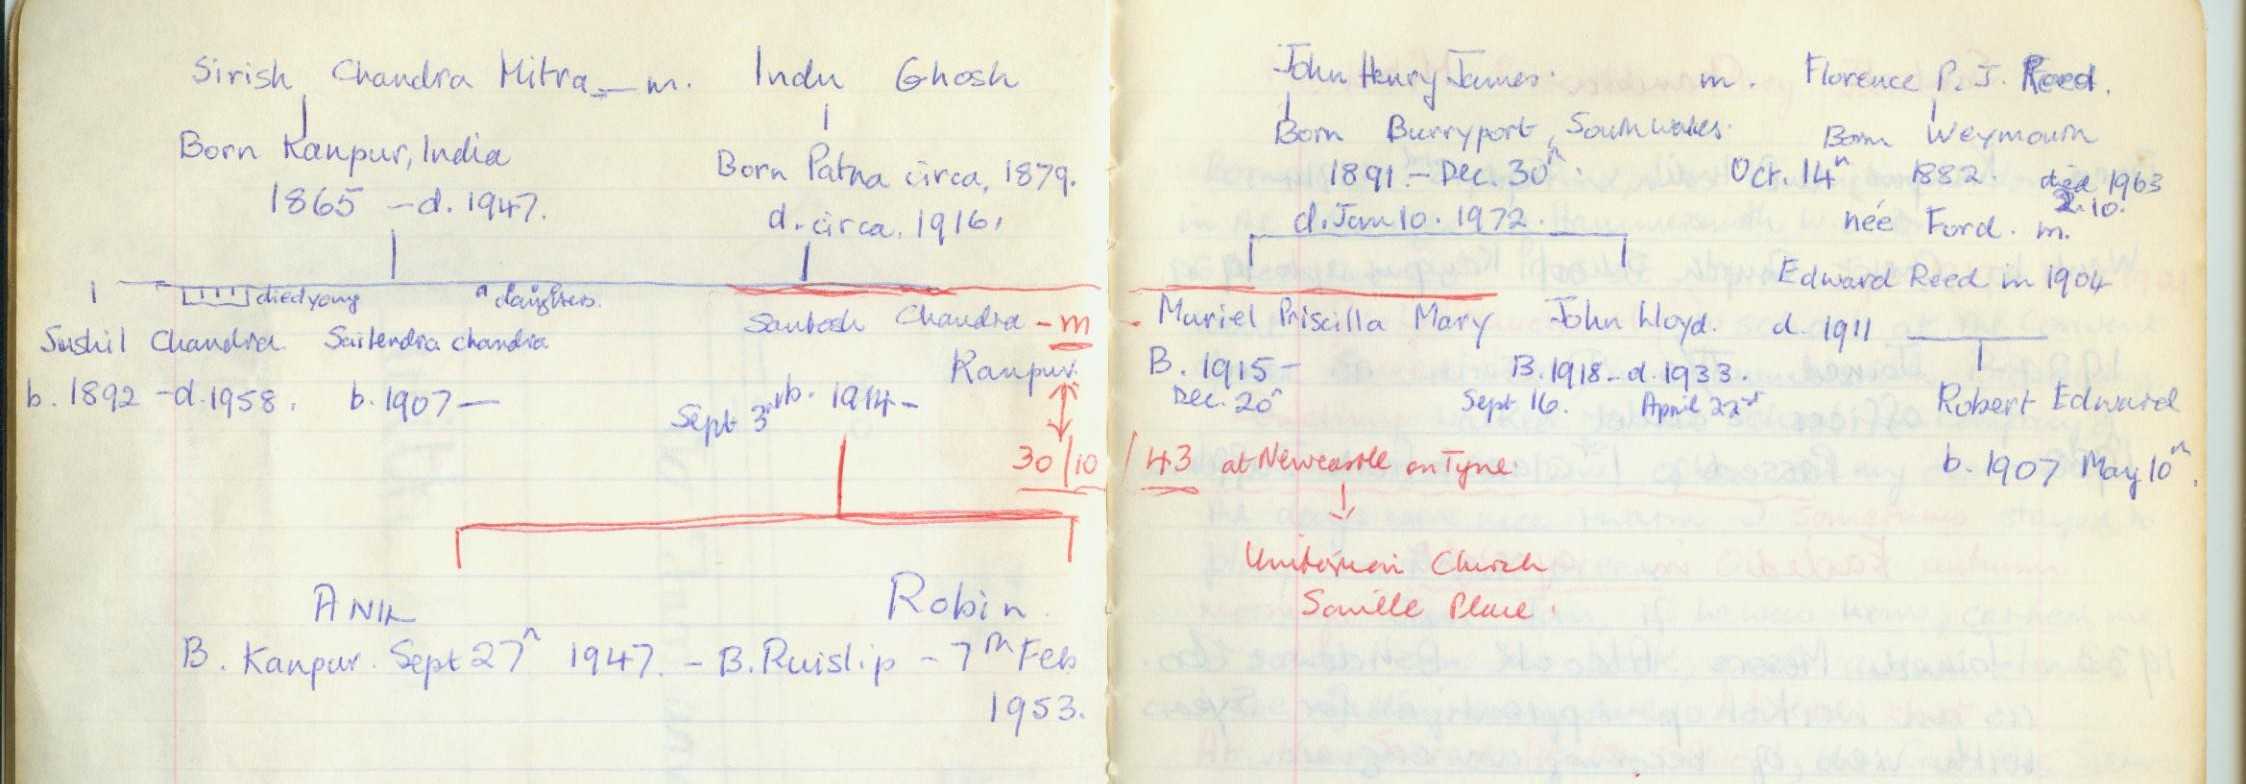 Sirish Chandra Mitra — m. Indu Ghosh
Born Kanpur, India
1865 – d. 1947.
Born Patna circa, 1879.
d. circa. 1916.
died young
4 daughters.
Sushil Chandra
b. 1892 – d. 1958.
Sailendra chandra
b. 1907 —
Santosh Chandra – m –
Kanpur.
Sept 3rd b. 1914 –
30/10/43 at Newcastle on Tyne
Unitarian Church
Saville Place.
ANIL
B. Kanpur. Sept 27th 1947. –
Robin.
B. Ruislip – 7th Feb
1953.
John Henry James. m. Florence P. J. Reed.
Born Burryport, South Wales.
1891. – Dec. 30th.
d. Jan 10. 1972.
Born Weymouth
Oct. 14th 1882. died 1963
2.10.
née Ford. m.
Edward Reed in 1904
d. 1911
Muriel Priscilla Mary
B. 1915 –
Dec. 20th
John Lloyd.
B. 1918 – d. 1933.
Sept 16. April 22nd
Robert Edward
b. 1907 May 10th.